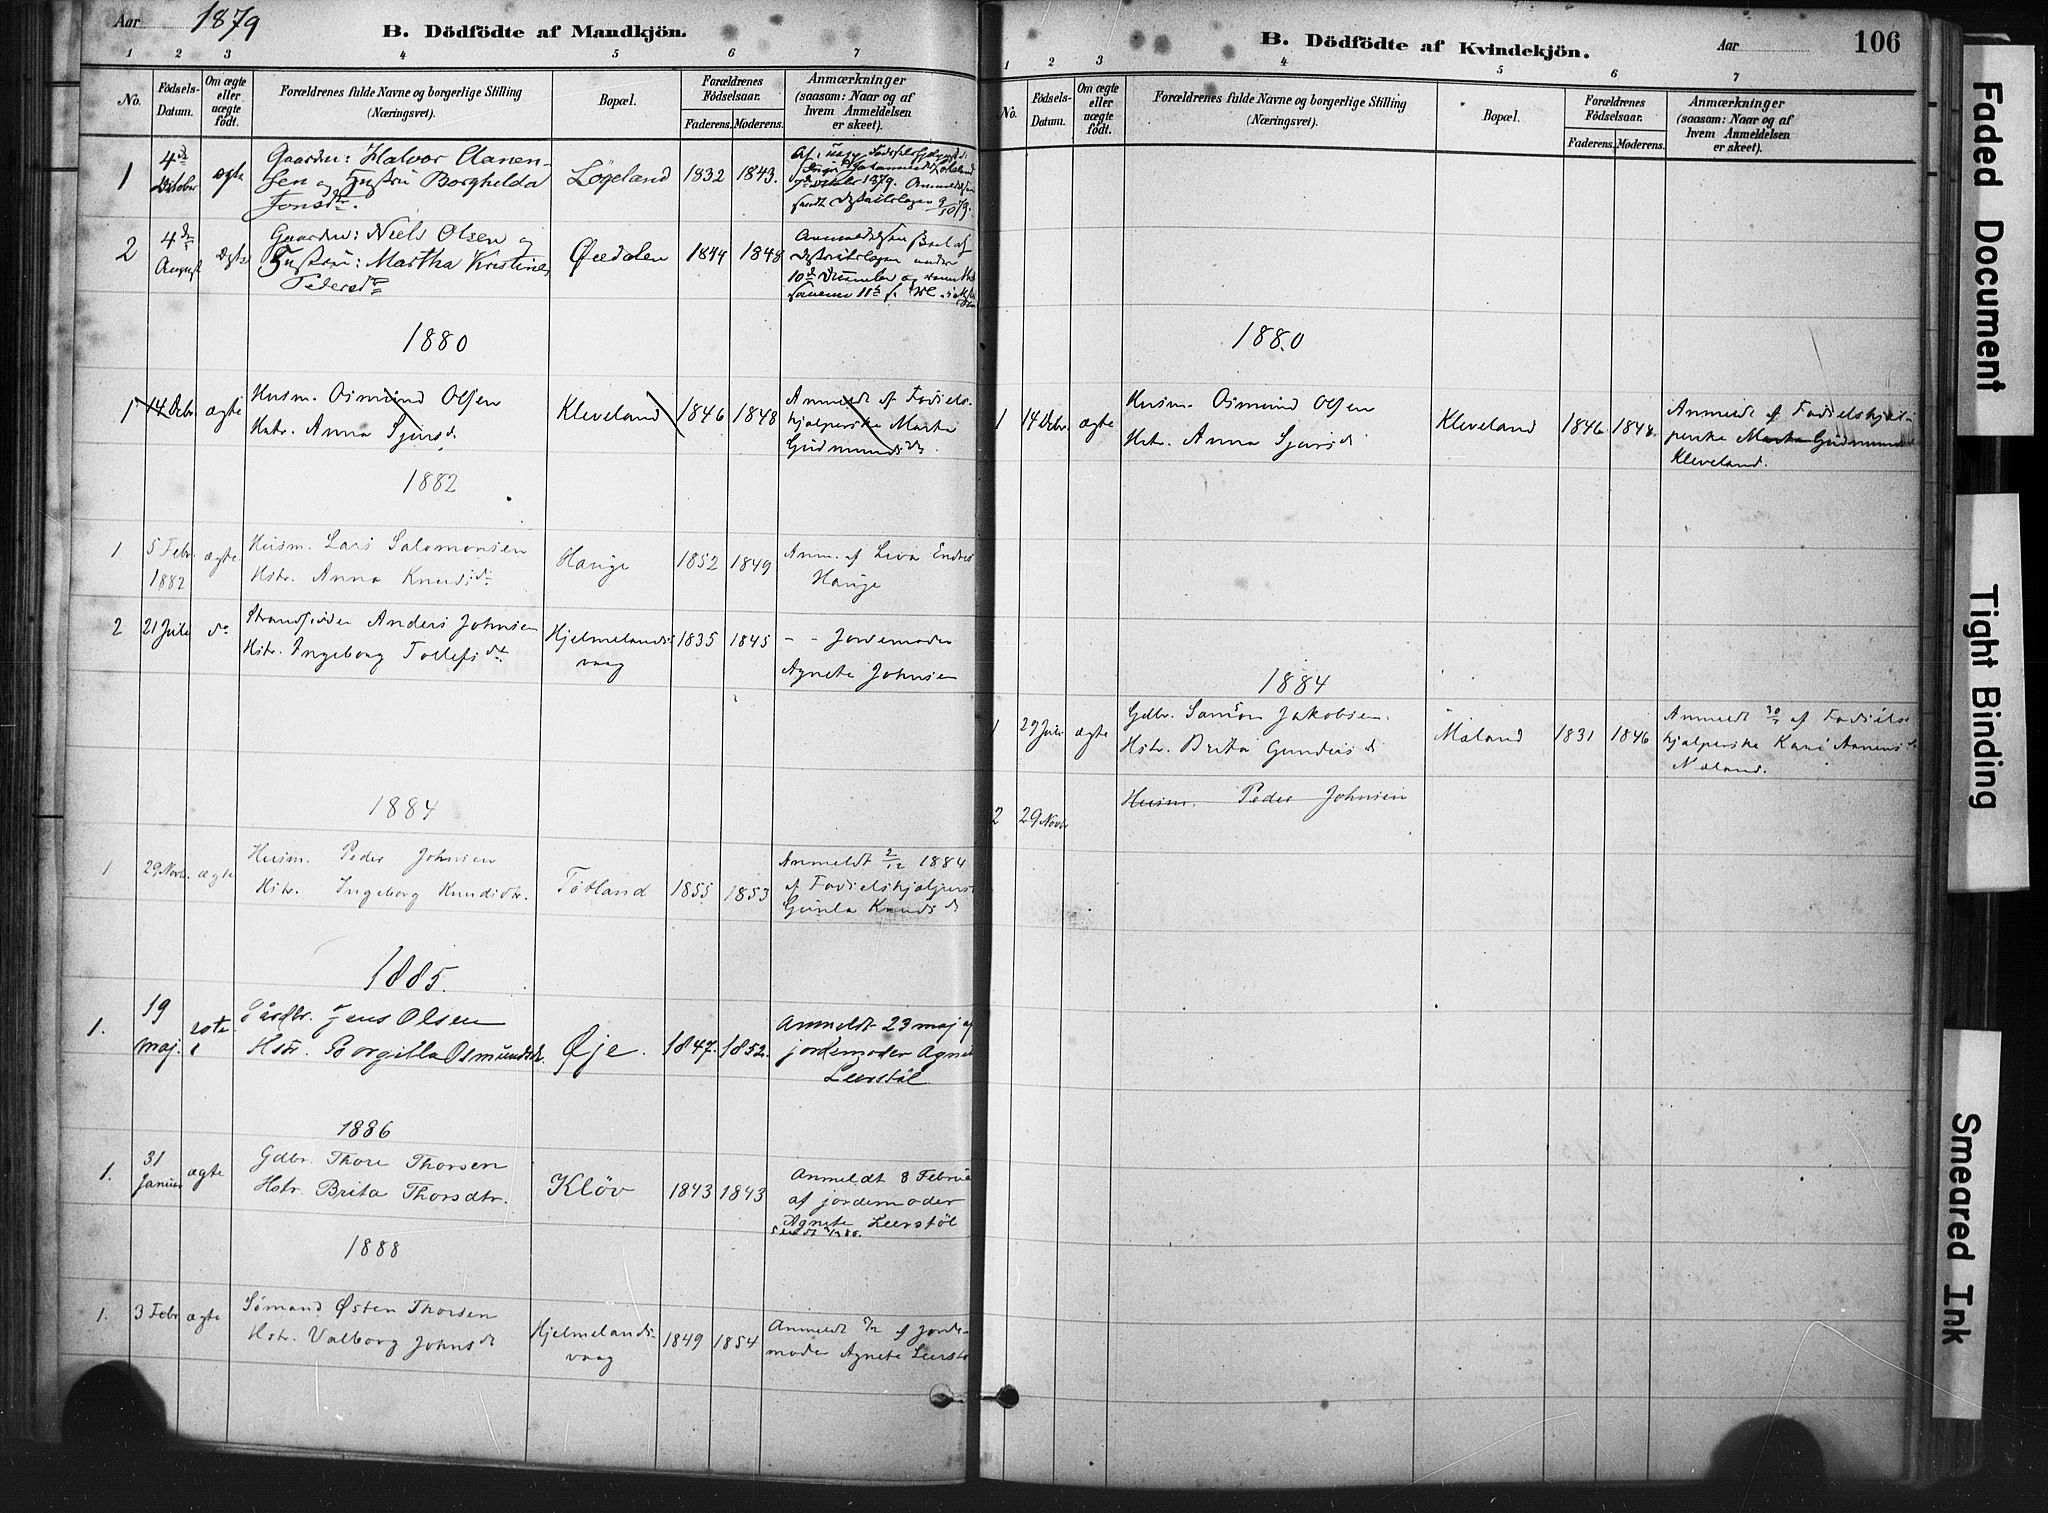 Aar 1879
B. Dödfödte af Mandkjön.
1 2 3 4 5 6 7
No.
Födsels-Datum.
Om ægte eller uægte födt.
Forældrenes fulde Navne og borgerlige Stilling
(Næringsvei).
Bopæl.
Forældrenes Födselsaar.
Faderens. Moderens.
Anmærkninger
(saasom: Naar og af
hvem Anmeldelsen
er skeet).
1 4de October ægte
Gaardm: Halvor Aanen-
sen og Hustru Borghelda
Jonsdtr.
Løgeland 1832 1843.
October 1879.
2 4de August ægte
Gaardm: Niels Olsen og
Hustru: Martha Kristine
Pedersdtr
Øredalen 1844 1848
Anmeldelsen
under
10de December og
1880
1 14 Debr. ægte
Husm. Osmund Olsen
Hstr. Anna Sjursd.
Kleveland 1846 1848
Anmeldt af Fødsels-
hjælperske Marta
Gudmundsdtr.
1882
1 5 Febr. 1882 ægte
Husm. Lars Salomonsen
Hstr. Anna Knudsdtr
Hauge 1852 1849
Anm. af Liva Endres
Hauge
2 21 Juli do
Strandsidder Anders Johnsen
Hstr. Ingeborg Tollefsdtr.
Hjelmelands-
vaag
1835 1845
- - Jordemoder
Agnete Johnsen
1884
1 29 Novb. ægte
Husm. Peder Johnsen
Hstr. Ingeborg Knudsdtr.
Tøtland 1855 1853
Anmeldt 2/12 1884
af Fødselshjælperske
Gunla Knudsd
1885.
1. 19 maj. ægte
Gårdbr. Jens Olsen
Hstr. Borgilla Osmundsdtr.
Øje. 1847. 1852.
Anmeldt 23 maj af
jordemoder Agnete
Leerstøl
1886
1. 31 Januar ægte
Gdbr. Thore Thorsen
Hstr. Brita Thorsdtr.
Kløv 1843 1843
Anmeldt 8 Februar
af jordemoder
Agnete Leerstøl
1888
1. 3 Febr ægte
Sømand Østen Thorsen
Hstr. Valborg Johnsd
Hjelmelands-
vaag
1849 1854
Anmeldt af Jorde-
moder Agnete Leerstøl
B. Dödfödte af Kvindekjön.
Aar
106
1 2 3 4 5 6 7
No.
Födsels-Datum.
Om ægte eller uægte födt.
Forældrenes fulde Navne og borgerlige Stilling
(Næringsvei).
Bopæl.
Forældrenes Födselsaar.
Faderens. Moderens.
Anmærkninger
(saasom: Naar og af
hvem Anmeldelsen
er skeet).
1880
1 14 Debr. ægte
Husm. Osmund Olsen
Hstr. Anna Sjursd
Kleveland 1846 1848.
Anmeldt af Fødselshjæl-
perske Marta Gudmundsd
Kleveland.
1884
1 27 Juli ægte
Gdbr. Samson Jakobsen.
Hstr. Brita Gundersd
Mæland 1831 1846
Anmeldt 30/7 af Fødsels-
hjælperske Kari Aanensd
Mæland.
2 29 Novbr
Husm. Peder Johnsen
Faded Document
Tight Binding
Smeared Ink